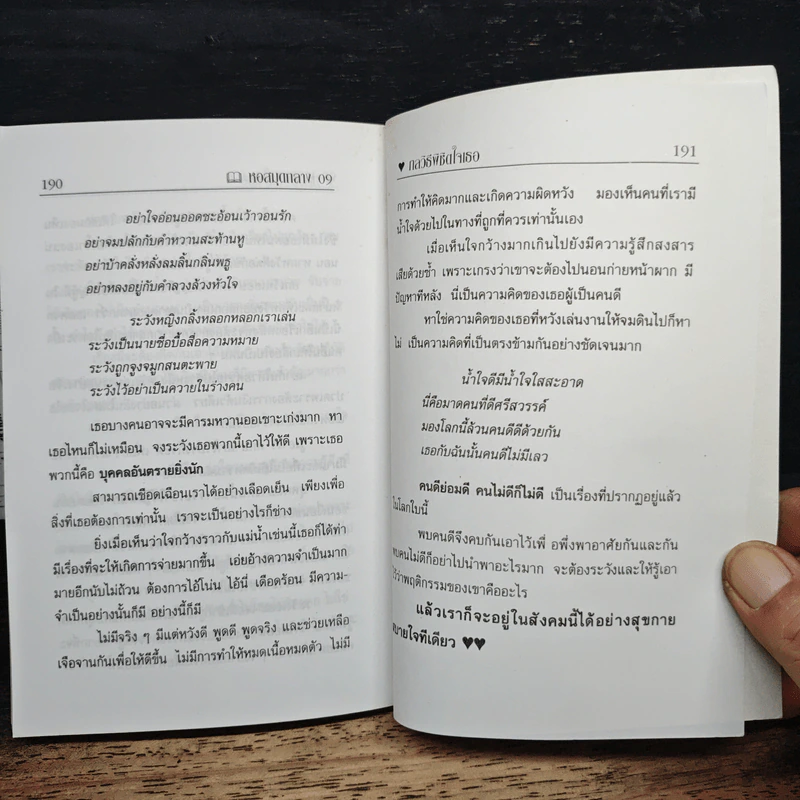 190
หอสมุดกลาง 09
อย่าใจอ่อนออดซะอ้อนเว้าวอนรัก
อย่าจมปลักกับคำหวานสะท้านหู
อย่าบ้าคลั่งหลั่งลมลิ้นกลิ่นพธู
อย่าหลงอยู่กับคำลวงล้วงหัวใจ
ระวังหญิงกลิ้งหลอกหลอกเราเล่น
ระวังเป็นนายซื่อบื้อสื่อความหมาย
ระวังถูกจูงจมูกสนตะพาย
ระวังไว้อย่าเป็นควายในร่างคน
เธอบางคนอาจจะมีคารมหวานออเซาะเก่งมาก หา
เธอไหนก็ไม่เหมือน จงระวังเธอพวกนี้เอาไว้ให้ดี เพราะเธอ
พวกนี้คือ บุคคลอันตรายยิ่งนัก
สามารถเชือดเฉือนเราได้อย่างเลือดเย็น เพียงเพื่อ
สิ่งที่เธอต้องการเท่านั้น เราจะเป็นอย่างไรก็ช่าง
ยิ่งเมื่อเห็นว่าใจกว้างราวกับแม่น้ำเช่นนี้เธอก็ได้ท่า
มีเรื่องที่จะให้เกิดการจ่ายมากขึ้น เอ่ยอ้างความจำเป็นมาก
มายอีกนับไม่ถ้วน ต้องการไอ้โน่น ไอ้นี่ เดือดร้อน มีความ-
จำเป็นอย่างนั้นก็มี อย่างนี้ก็มี
ไม่มีจริง ๆ มีแต่หวังดี พูดดี พูดจริง และช่วยเหลือ
เจือจานกันเพื่อให้ดีขึ้น ไม่มีการทำให้หมดเนื้อหมดตัว ไม่มี
♥ กลวิธีพิชิตใจเธอ
191
การทำให้คิดมากและเกิดความผิดหวัง มองเห็นคนที่เรามี
น้ำใจด้วยไปในทางที่ถูกที่ควรเท่านั้นเอง
เมื่อเห็นใจกว้างมากเกินไปยังมีความรู้สึกสงสาร
เสียด้วยซ้ำ เพราะเกรงว่าเขาจะต้องไปนอนก่ายหน้าผาก มี
ปัญหาทีหลัง นี่เป็นความคิดของเธอผู้เป็นคนดี
หาใช่ความคิดของเธอที่หวังเล่นงานให้จมดินไปก็หา
ไม่ เป็นความคิดที่เป็นตรงข้ามกันอย่างชัดเจนมาก
น้ำใจดีมีน้ำใจใสสะอาด
นี่คือมาดคนที่ดีศรีสวรรค์
มองโลกนี้ล้วนคนดีดีด้วยกัน
เธอกับฉันนั้นคนดีไม่มีเลว
คนดีย่อมดี คนไม่ดีก็ไม่ดี เป็นเรื่องที่ปรากฏอยู่แล้ว
ในโลกใบนี้
พบคนดีจึงคบกันเอาไว้เพื่ อพึ่งพาอาศัยกันและกัน
พบคนไม่ดีก็อย่าไปนำพาอะไรมาก จะต้องระวังและให้รู้เอา
ไว้ว่าพฤติกรรมของเขาคืออะไร
แล้วเราก็จะอยู่ในสังคมนี้ได้อย่างสุขกาย
สบายใจทีเดียว ♥♥